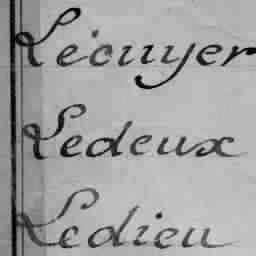 Lécuyer
Ledeux
Ledieu